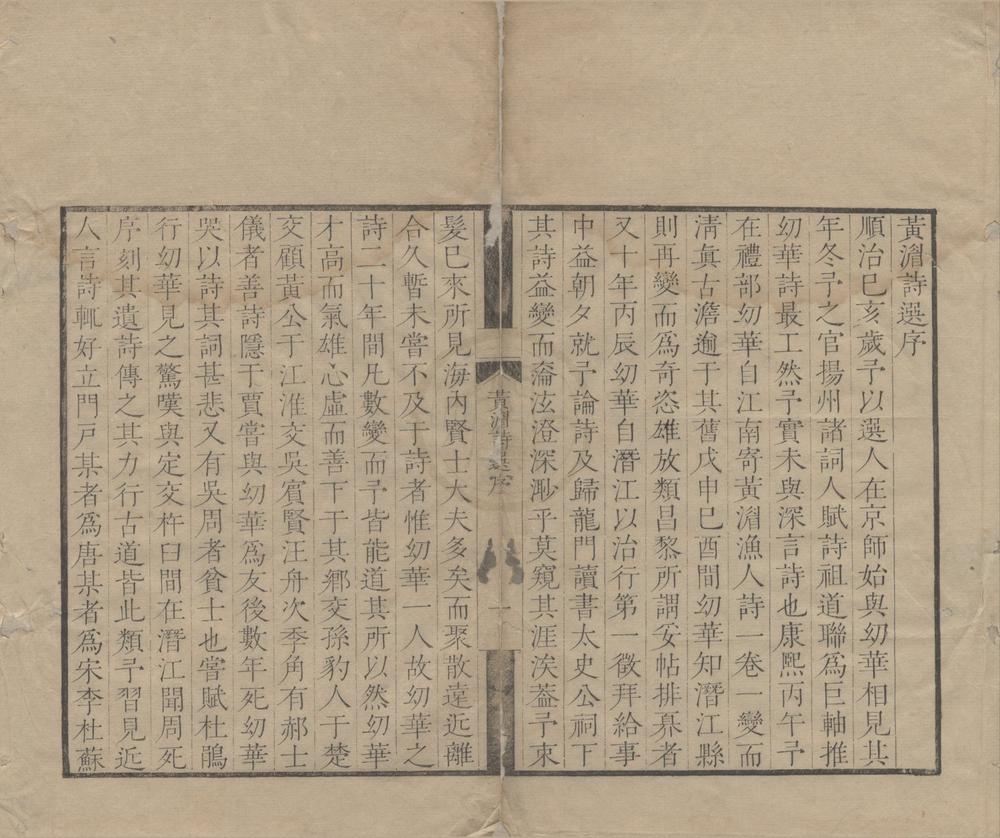 黃湄詩選序
順治己亥歲予以選人在京師始與幼華相見其
年冬予之官揚州諸詞人賦詩祖道聯爲巨軸推
幼華詩最工然予實未與深言詩也康熙丙午予
在禮部幼華自江南寄黃湄漁人詩一卷一變而
淸眞古澹逈于其舊戊申己酉間幼華知潛江縣
則再變而爲奇恣雄放類昌黎所謂妥帖排奡者
又十年丙辰幼華自潛江以治行第一徵拜給事
中益朝夕就予論詩及歸龍門讀書太史公祠下
其詩益變而奫泫澄深渺乎莫窺其涯涘葢予束
黃湄詩選序
一
髮已來所見海內賢士大夫多矣而聚散遠近離
合久暫未嘗不及于詩者惟幼華一人故幼華之
詩二十年間凡數變而予皆能道其所以然幼華
才高而氣雄心虛而善下于其鄉交孫豹人于楚
交顧黃公于江淮交吳賓賢汪舟次季角有郝士
儀者善詩隱于賈嘗與幼華爲友後數年死幼華
哭以詩其詞甚悲又有吳周者貧士也嘗賦杜鵑
行幼華見之驚嘆與定交杵臼間在潛江聞周死
序刻其遺詩傳之其力行古道皆此類予習見近
人言詩輒好立門戶某者爲唐某者爲宋李杜蘇